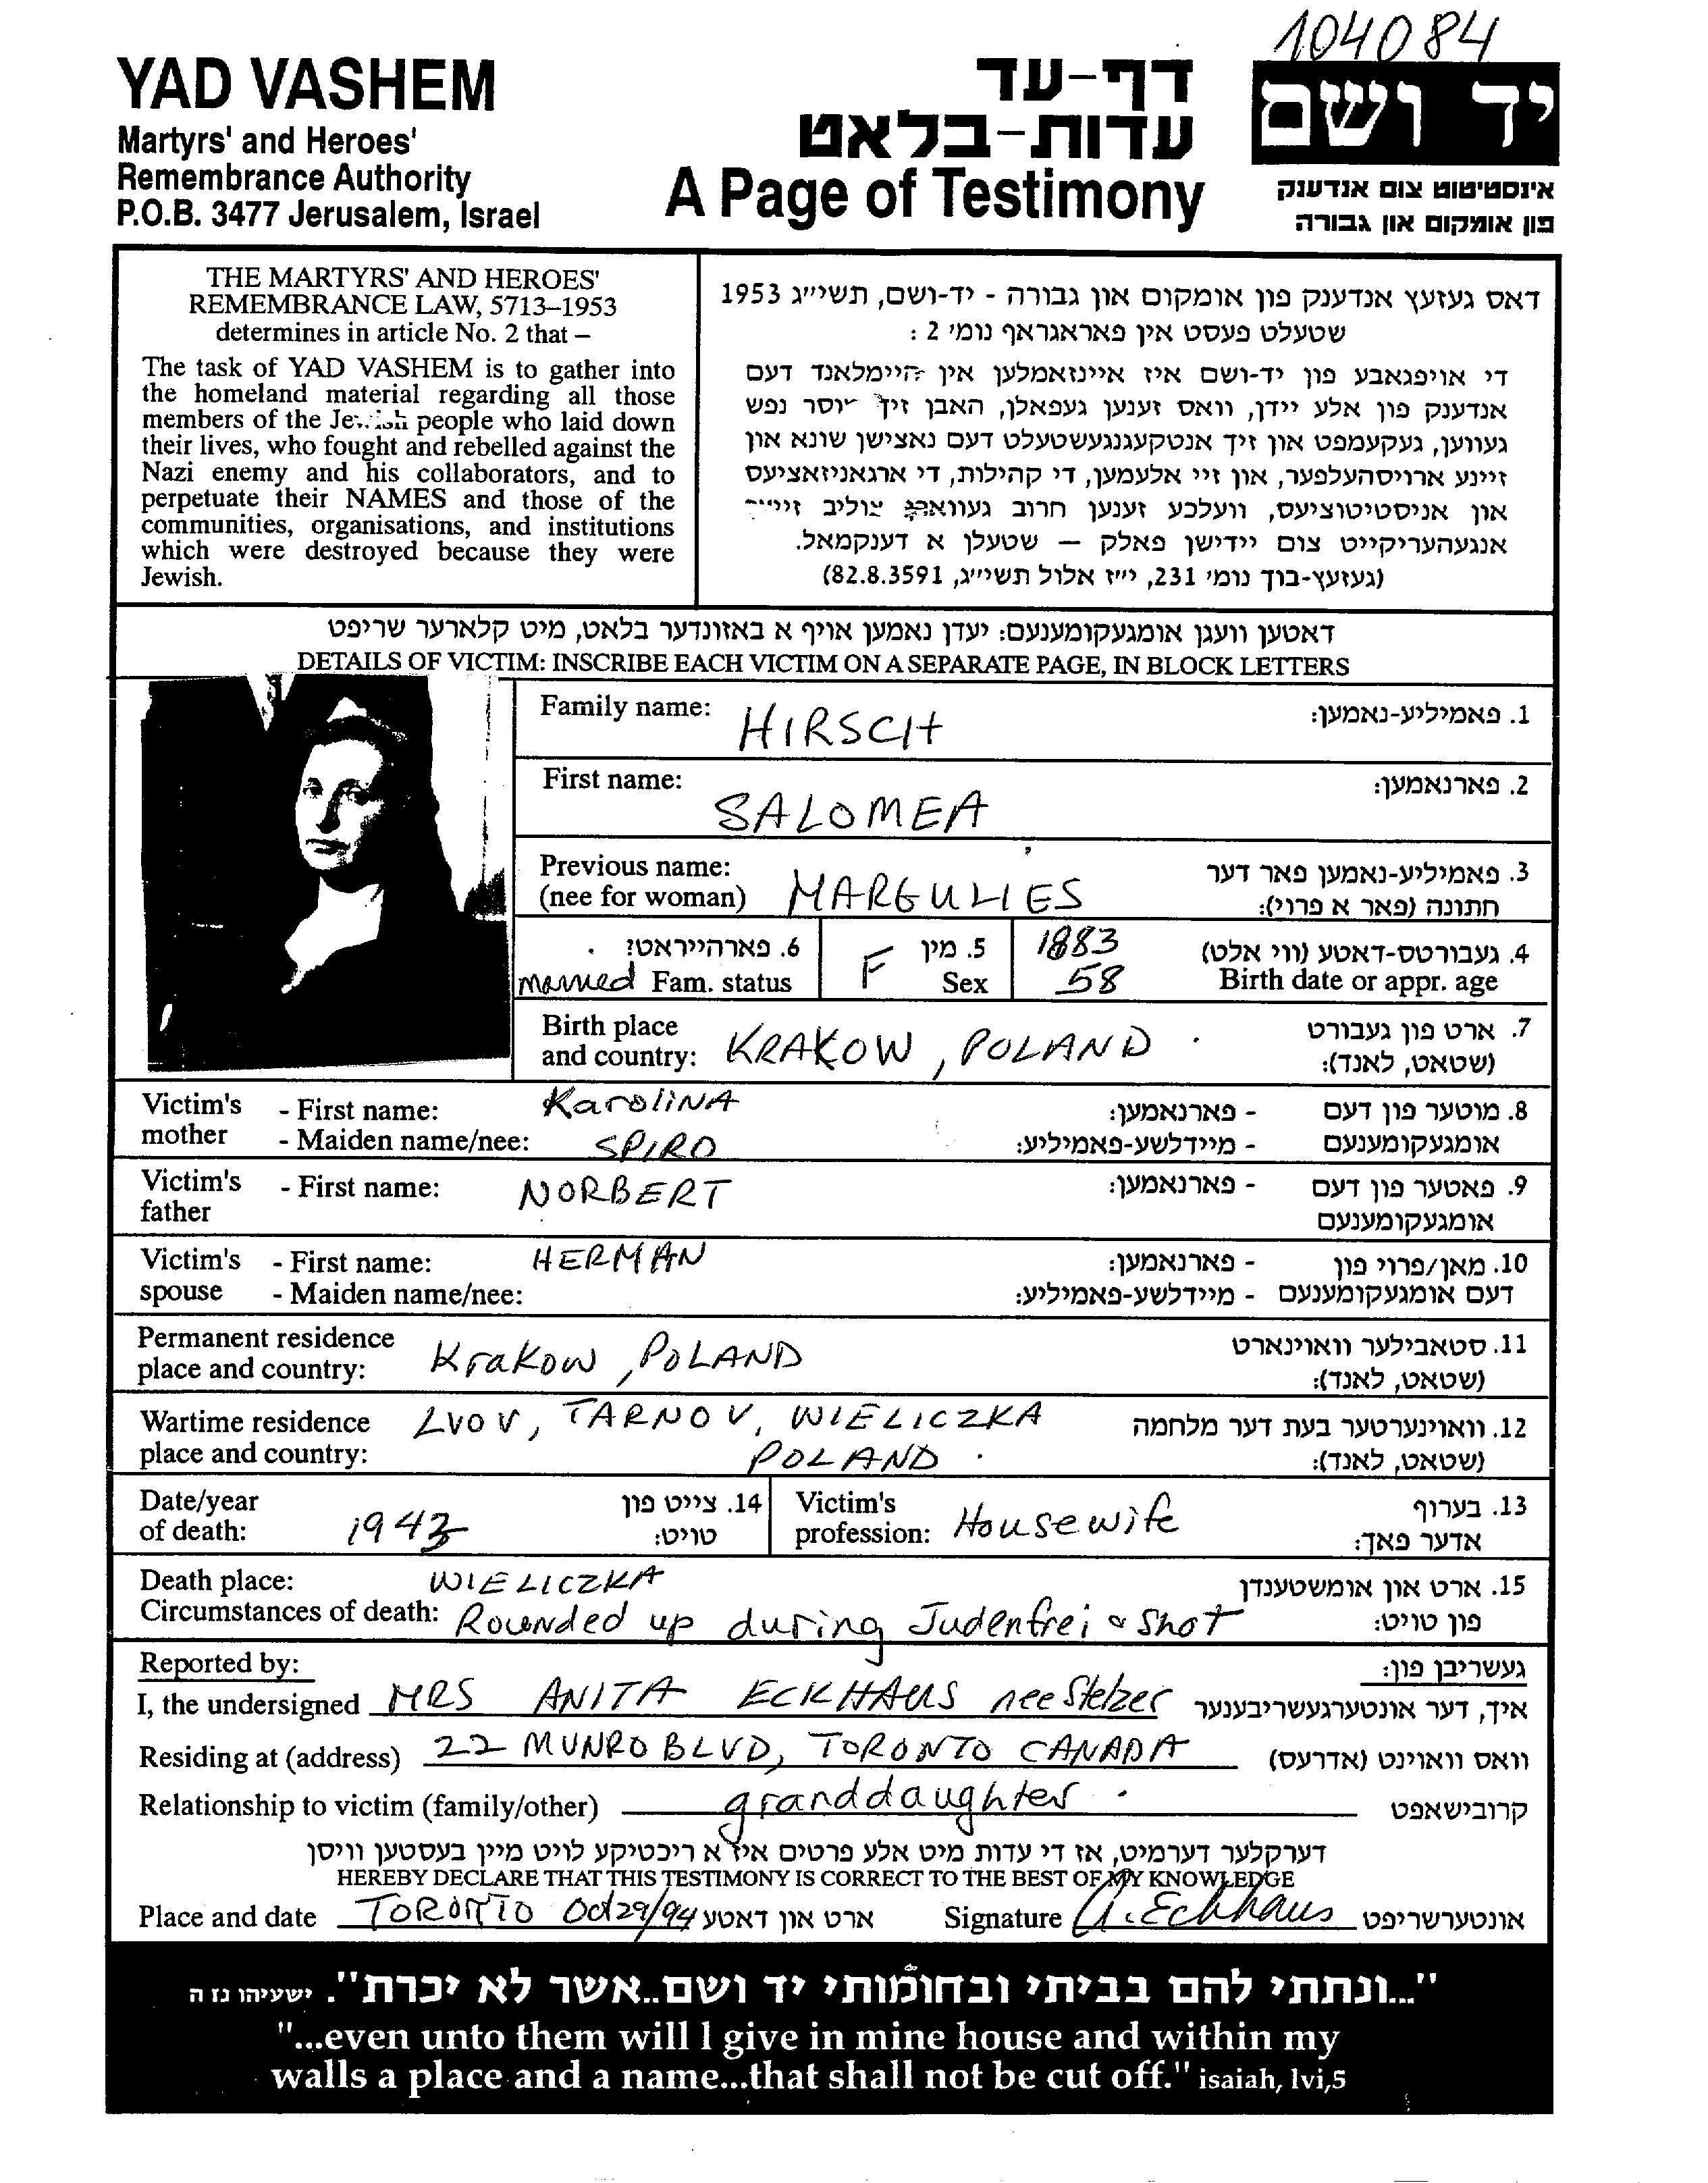 104084
YAD VASHEM
Martyrs' and Heroes'
Remembrance Authority
P.O.B. 3477 Jerusalem, Israel
דף-עד
עדות-בלאט
A Page of Testimony
יד ושם
אינסטיטוט צום אנדענק
פון אומקום און גבורה
THE MARTYRS' AND HEROES'
REMEMBRANCE LAW, 5713–1953
determines in article No. 2 that –
The task of YAD VASHEM is to gather into
the homeland material regarding all those
members of the Jewish people who laid down
their lives, who fought and rebelled against the
Nazi enemy and his collaborators, and to
perpetuate their NAMES and those of the
communities, organisations, and institutions
which were destroyed because they were
Jewish.
דאס געזעץ אנדענק פון אומקום און גבורה - יד-ושם, תשי״ג 1953
שטעלט פעסט אין פאראגראף נומ׳ 2 :
די אויפגאבע פון יד-ושם איז איינזאמלען אין היימלאנד דעם
אנדענק פון אלע יידן, וואס זענען געפאלן, האבן זיך מוסר נפש
געווען, געקעמפט און זיך אנטקעגנגעשטעלט דעם נאצישן שונא און
זיינע ארויסהעלפער, און זיי אלעמען, די קהילות, די ארגאניזאציעס
און אניסטיטוציעס, וועלכע זענען חרוב געווארן צוליב זייער
אנגעהעריקייט צום יידישן פאלק – שטעלן א דענקמאל.
(געזעץ-בוך נומ׳ 231, י״ז אלול תשי״ג, 82.8.3591)
דאטען וועגן אומגעקומענעם: יעדן נאמען אויף א באזונדער בלאט, מיט קלארער שריפט
DETAILS OF VICTIM: INSCRIBE EACH VICTIM ON A SEPARATE PAGE, IN BLOCK LETTERS
Family name: HIRSCH 1. פאמיליע-נאמען:
First name: SALOMEA 2. פארנאמען:
Previous name: 3. פאמיליע-נאמען פאר דער
(nee for woman) MARGULIES חתונה (פאר א פרוי):
6. פארהייראט? 5. מין 1883 4. געבורטס-דאטע (ווי אלט)
married Fam. status F Sex 58 Birth date or appr. age
Birth place 7. ארט פון געבורט
and country: KRAKOW, POLAND (שטאט, לאנד):
Victim's - First name: KarolINA - פארנאמען: 8. מוטער פון דעם
mother - Maiden name/nee: SPIRO - מיידלשע-פאמיליע: אומגעקומענעם
Victim's - First name: NORBERT - פארנאמען: 9. פאטער פון דעם
father אומגעקומענעם
Victim's - First name: HERMAN - פארנאמען: 10. מאן/פרוי פון
spouse - Maiden name/nee: - מיידלשע-פאמיליע: דעם אומגעקומענעם
Permanent residence 11. סטאבילער וואוינארט
place and country: Krakow, POLAND (שטאט, לאנד):
Wartime residence LVOV, TARNOV, WIELICZKA 12. וואוינערטער בעת דער מלחמה
place and country: POLAND (שטאט, לאנד):
Date/year 14. צייט פון Victim's 13. בערוף
of death: 1943 טויט: profession: Housewife אדער פאך:
Death place: WIELICZKA 15. ארט און אומשטענדן
Circumstances of death: Rounded up during Judenfrei & Shot פון טויט:
Reported by: געשריבן פון:
I, the undersigned MRS ANITA ECKHAUS nee Stelzer איך, דער אונטערגעשריבענער
Residing at (address) 22 MUNRO BLVD, TORONTO CANADA וואס וואוינט (אדרעס)
Relationship to victim (family/other) granddaughter קרובישאפט
דערקלער דערמיט, אז די עדות מיט אלע פרטים איז א ריכטיקע לויט מיין בעסטען וויסן
HEREBY DECLARE THAT THIS TESTIMONY IS CORRECT TO THE BEST OF MY KNOWLEDGE
Place and date TORONTO Oct 29/94 ארט און דאטע Signature A. Eckhaus אונטערשריפט
"...ונתתי להם בביתי ובחומותי יד ושם..אשר לא יכרת". ישעיהו נו ה
"...even unto them will I give in mine house and within my
walls a place and a name...that shall not be cut off." isaiah, lvi,5